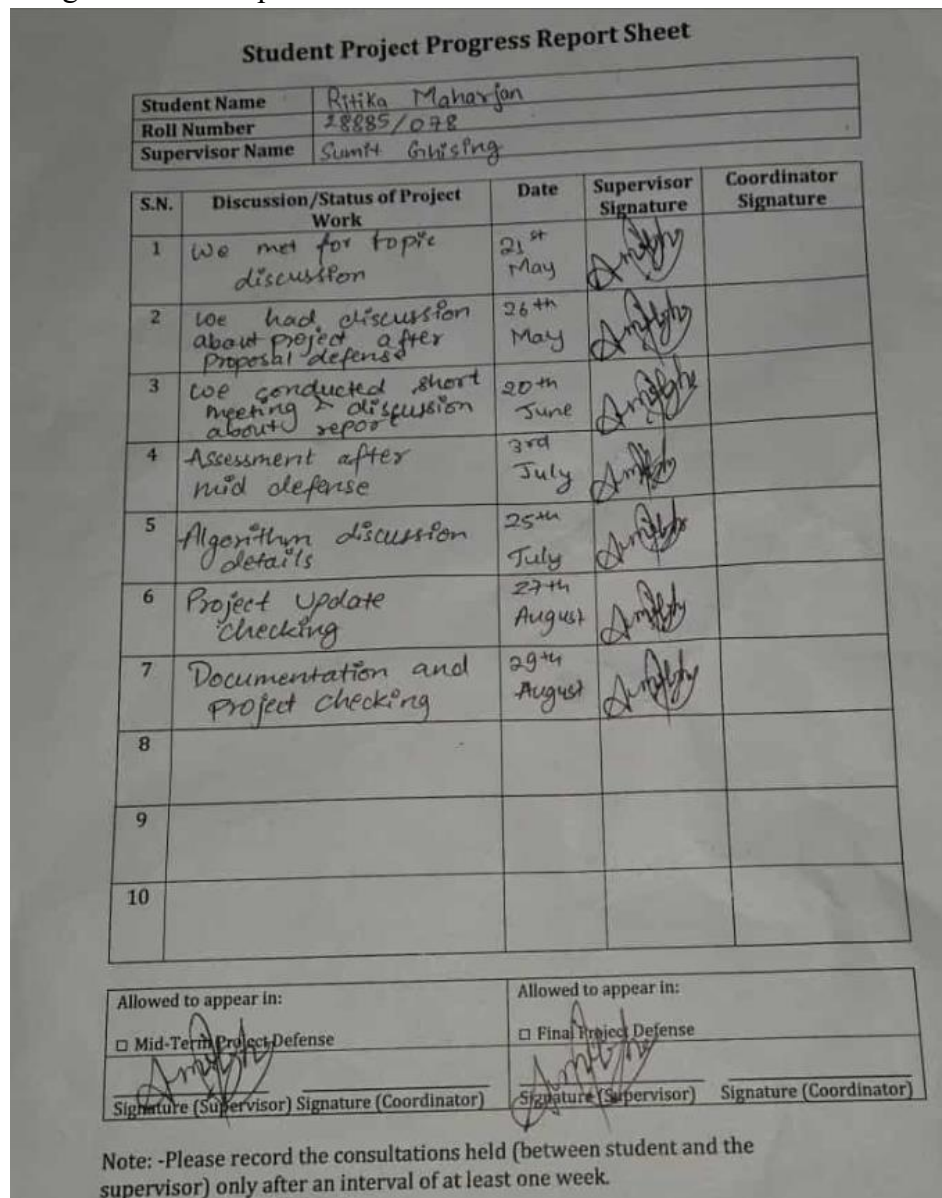 Student Project Progress Report Sheet
Student Name Ritika Maharjan
Roll Number 28885/078
Supervisor Name Sumit Ghising
S.N. Discussion/Status of Project Work Date Supervisor Signature Coordinator Signature
1 We met for topic 21st
discussion May
2 we had discussion 26th
about project after May
proposal defense
3 we conducted short 20th
meeting & discussion June
about report
4 Assessment after 3rd
mid defense July
5 Algorithm discussion 25th
details July
6 Project Update 27th
checking August
7 Documentation and 29th
project checking August
8
9
10
Allowed to appear in: Allowed to appear in:
□ Mid-Term Project Defense □ Final Project Defense
Signature (Supervisor) Signature (Coordinator) Signature (Supervisor) Signature (Coordinator)
Note: -Please record the consultations held (between student and the
supervisor) only after an interval of at least one week.